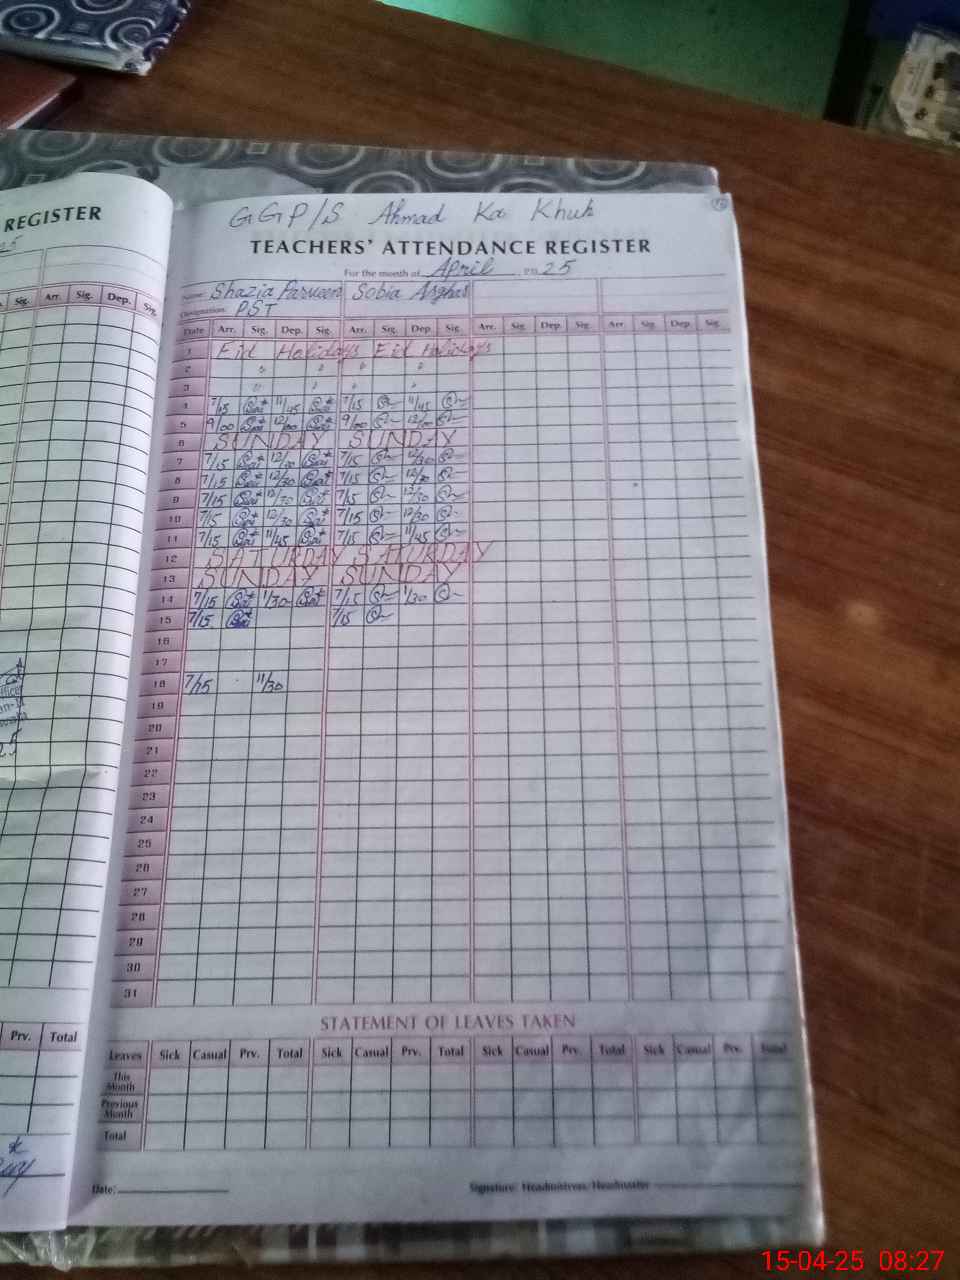 REGISTER
25
Arr. Sig. Dep. Sig.
Prv. Total
GGP/S Ahmad Ka Khuh
TEACHERS' ATTENDANCE REGISTER
For the month of April 25
Name: Shazia Parveen Sobia Asghar
Designation: PST
Date Arr. Sig. Dep. Sig. Arr. Sig. Dep. Sig. Arr. Sig. Dep. Sig. Arr. Sig. Dep. Sig.
1 Eid Holidays Eid Holidays
2 " " " "
3 " " " "
4 7/15 11/45 7/15 11/45
5 9/00 12/00 9/00 12/00
6 SUNDAY SUNDAY
7 7/15 12/30 7/15 12/30
8 7/15 12/30 7/15 12/30
9 7/15 12/30 7/15 12/30
10 7/15 12/30 7/15 12/30
11 7/15 11/45 7/15 11/45
12 SATURDAY SATURDAY
13 SUNDAY SUNDAY
14 7/15 1/30 7/15 1/30
15 7/15 7/15
16
17
18 7/15 11/30
19
20
21
22
23
24
25
26
27
28
29
30
31
STATEMENT OF LEAVES TAKEN
Leaves Sick Casual Prv. Total Sick Casual Prv. Total Sick Casual Prv. Total Sick Casual Prv. Total
This Month
Previous Month
Total
Date: Signature: Headmistress/Headmaster
15-04-25 08:27